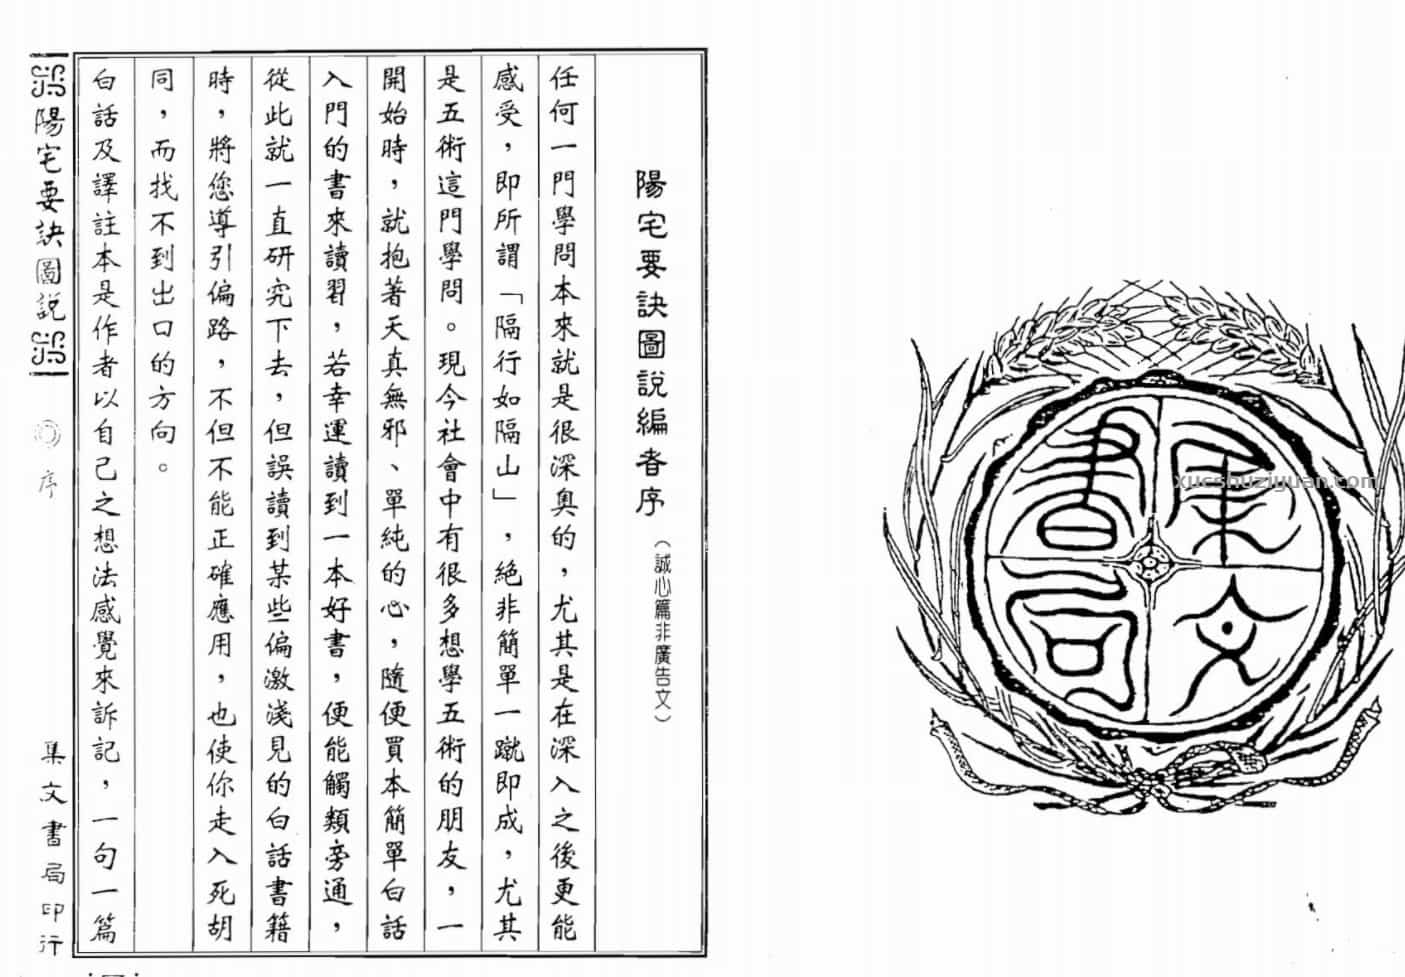 集文
書局
xucshuziyuan.com
陽宅要訣圖說編者序(誠心篇非廣告文)
任何一門學問本來就是很深奧的,尤其是在深入之後更能
感受,即所謂「隔行如隔山」,絕非簡單一蹴即成,尤其
是五術這門學問。現今社會中有很多想學五術的朋友,一
開始時,就抱著天真無邪、單純的心,隨便買本簡單白話
入門的書來讀習,若幸運讀到一本好書,便能觸類旁通,
從此就一直研究下去,但誤讀到某些偏激淺見的白話書籍
時,將您導引偏路,不但不能正確應用,也使你走入死胡
同,而找不到出口的方向。
白話及譯註本是作者以自己之想法感覺來訴記,一句一篇
陽宅要訣圖說
序
集文書局印行